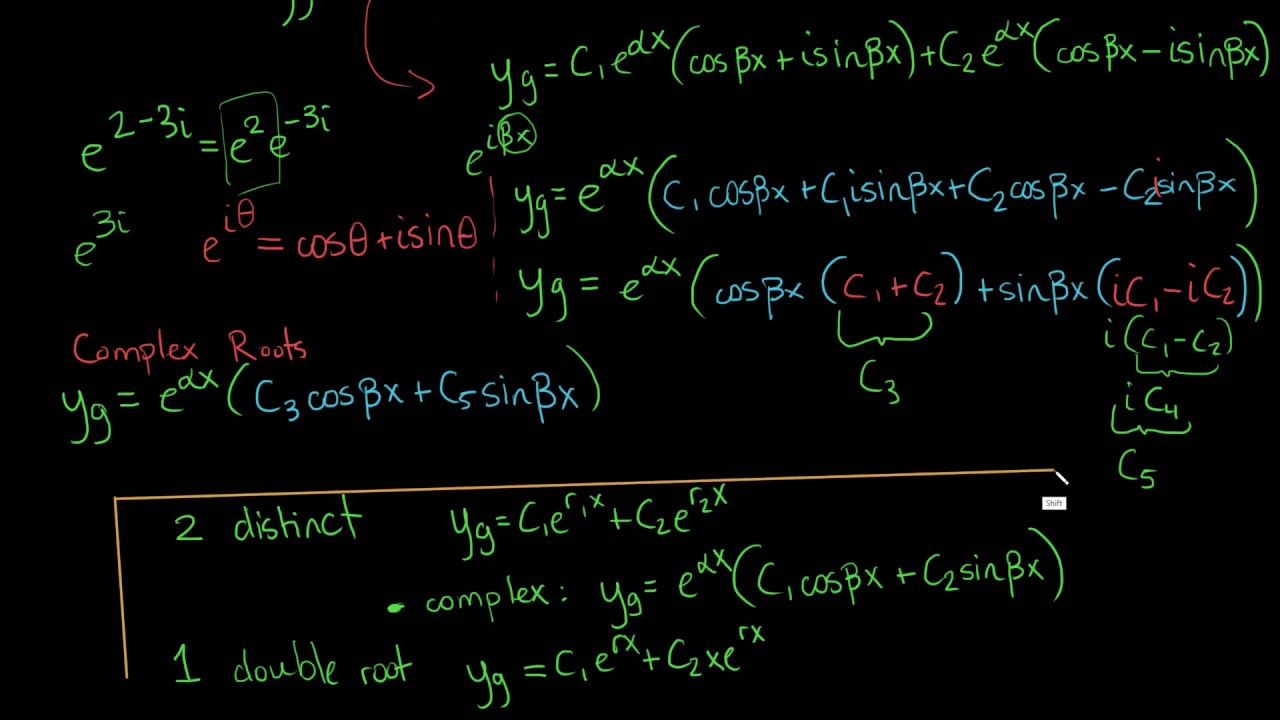 y_g = C₁e^{αx}(cosβx + isinβx) + C₂e^{αx}(cosβx − isinβx)
e^{2−3i} = e² e^{−3i}
e^{iβx}
y_g = e^{αx}(C₁cosβx + C₁isinβx + C₂cosβx − C₂isinβx)
e^{3i}
e^{iθ} = cosθ + isinθ
y_g = e^{αx}(cosβx (C₁ + C₂) + sinβx (iC₁ − iC₂))
i(C₁ − C₂)
C₃
iC₄
C₅
Complex Roots
y_g = e^{αx}(C₃cosβx + C₅sinβx)
Shift
2 distinct y_g = C₁e^{r₁x} + C₂e^{r₂x}
• complex: y_g = e^{αx}(C₁cosβx + C₂sinβx)
1 double root y_g = C₁e^{rx} + C₂xe^{rx}